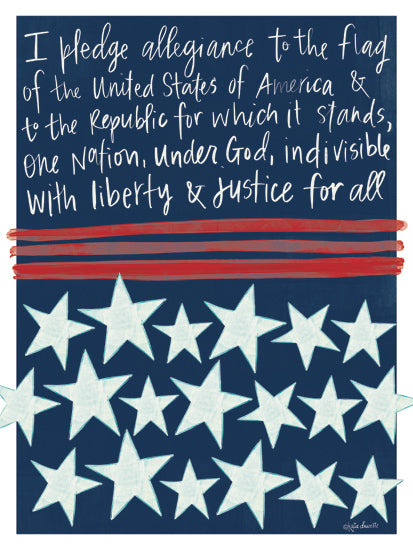 I pledge allegiance to the flag
of the United States of America &
to the Republic for which it stands,
One Nation, Under God, indivisible
With liberty & Justice for all